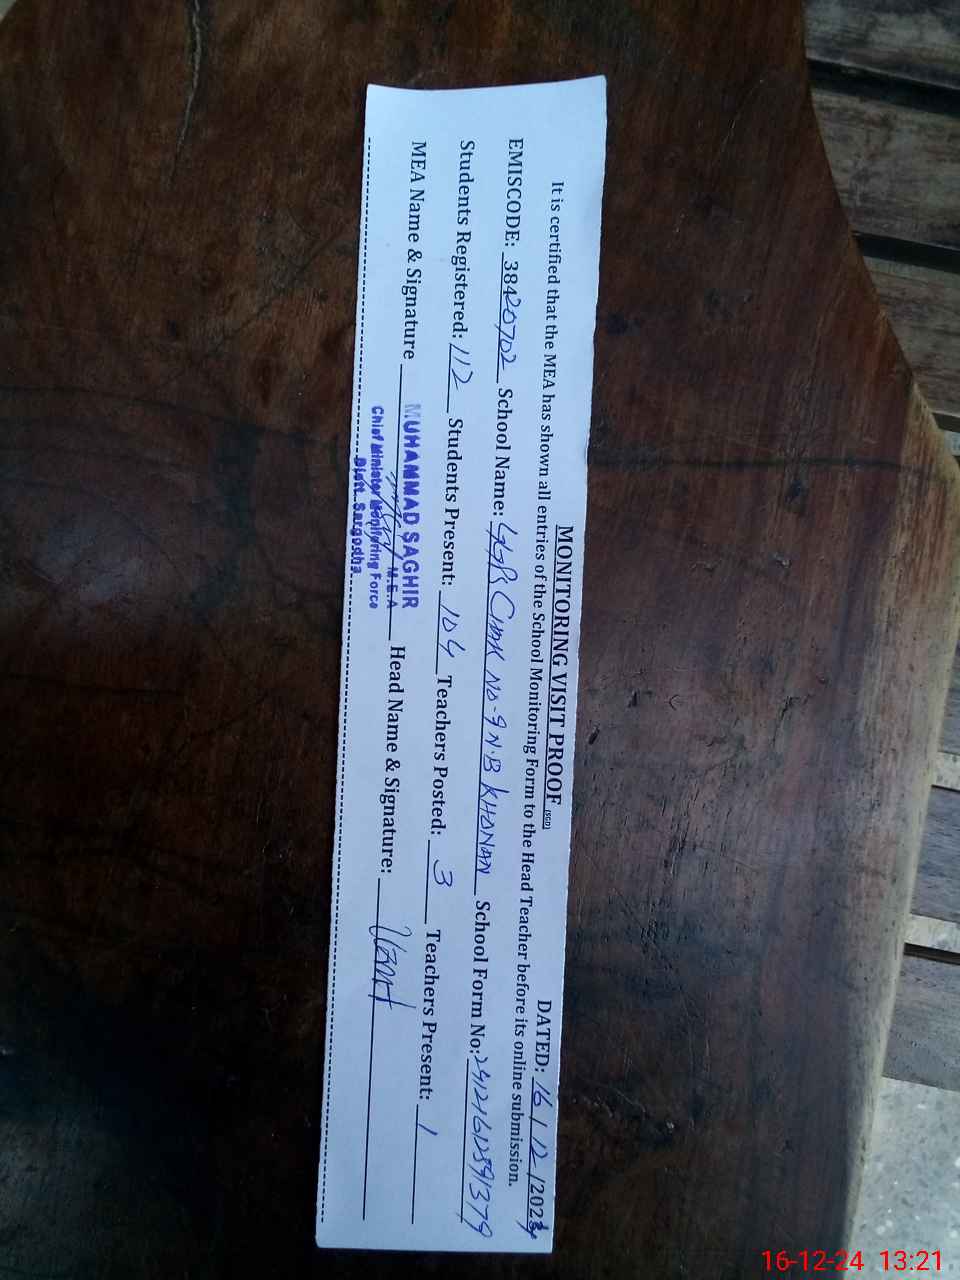 MONITORING VISIT PROOF (SGD) DATED: 16/12/2024
It is certified that the MEA has shown all entries of the School Monitoring Form to the Head Teacher before its online submission.
EMISCODE: 38420702 School Name: GGPS Chak No-9 N.B KHANAN School Form No:
Students Registered: 112 Students Present: 104 Teachers Posted: 3 Teachers Present: 1
MEA Name & Signature Head Name & Signature:
MUHAMMAD SAGHIR
M.E.A
Chief Minister Monitoring Force
Distt. Sargodha
16-12-24 13:21